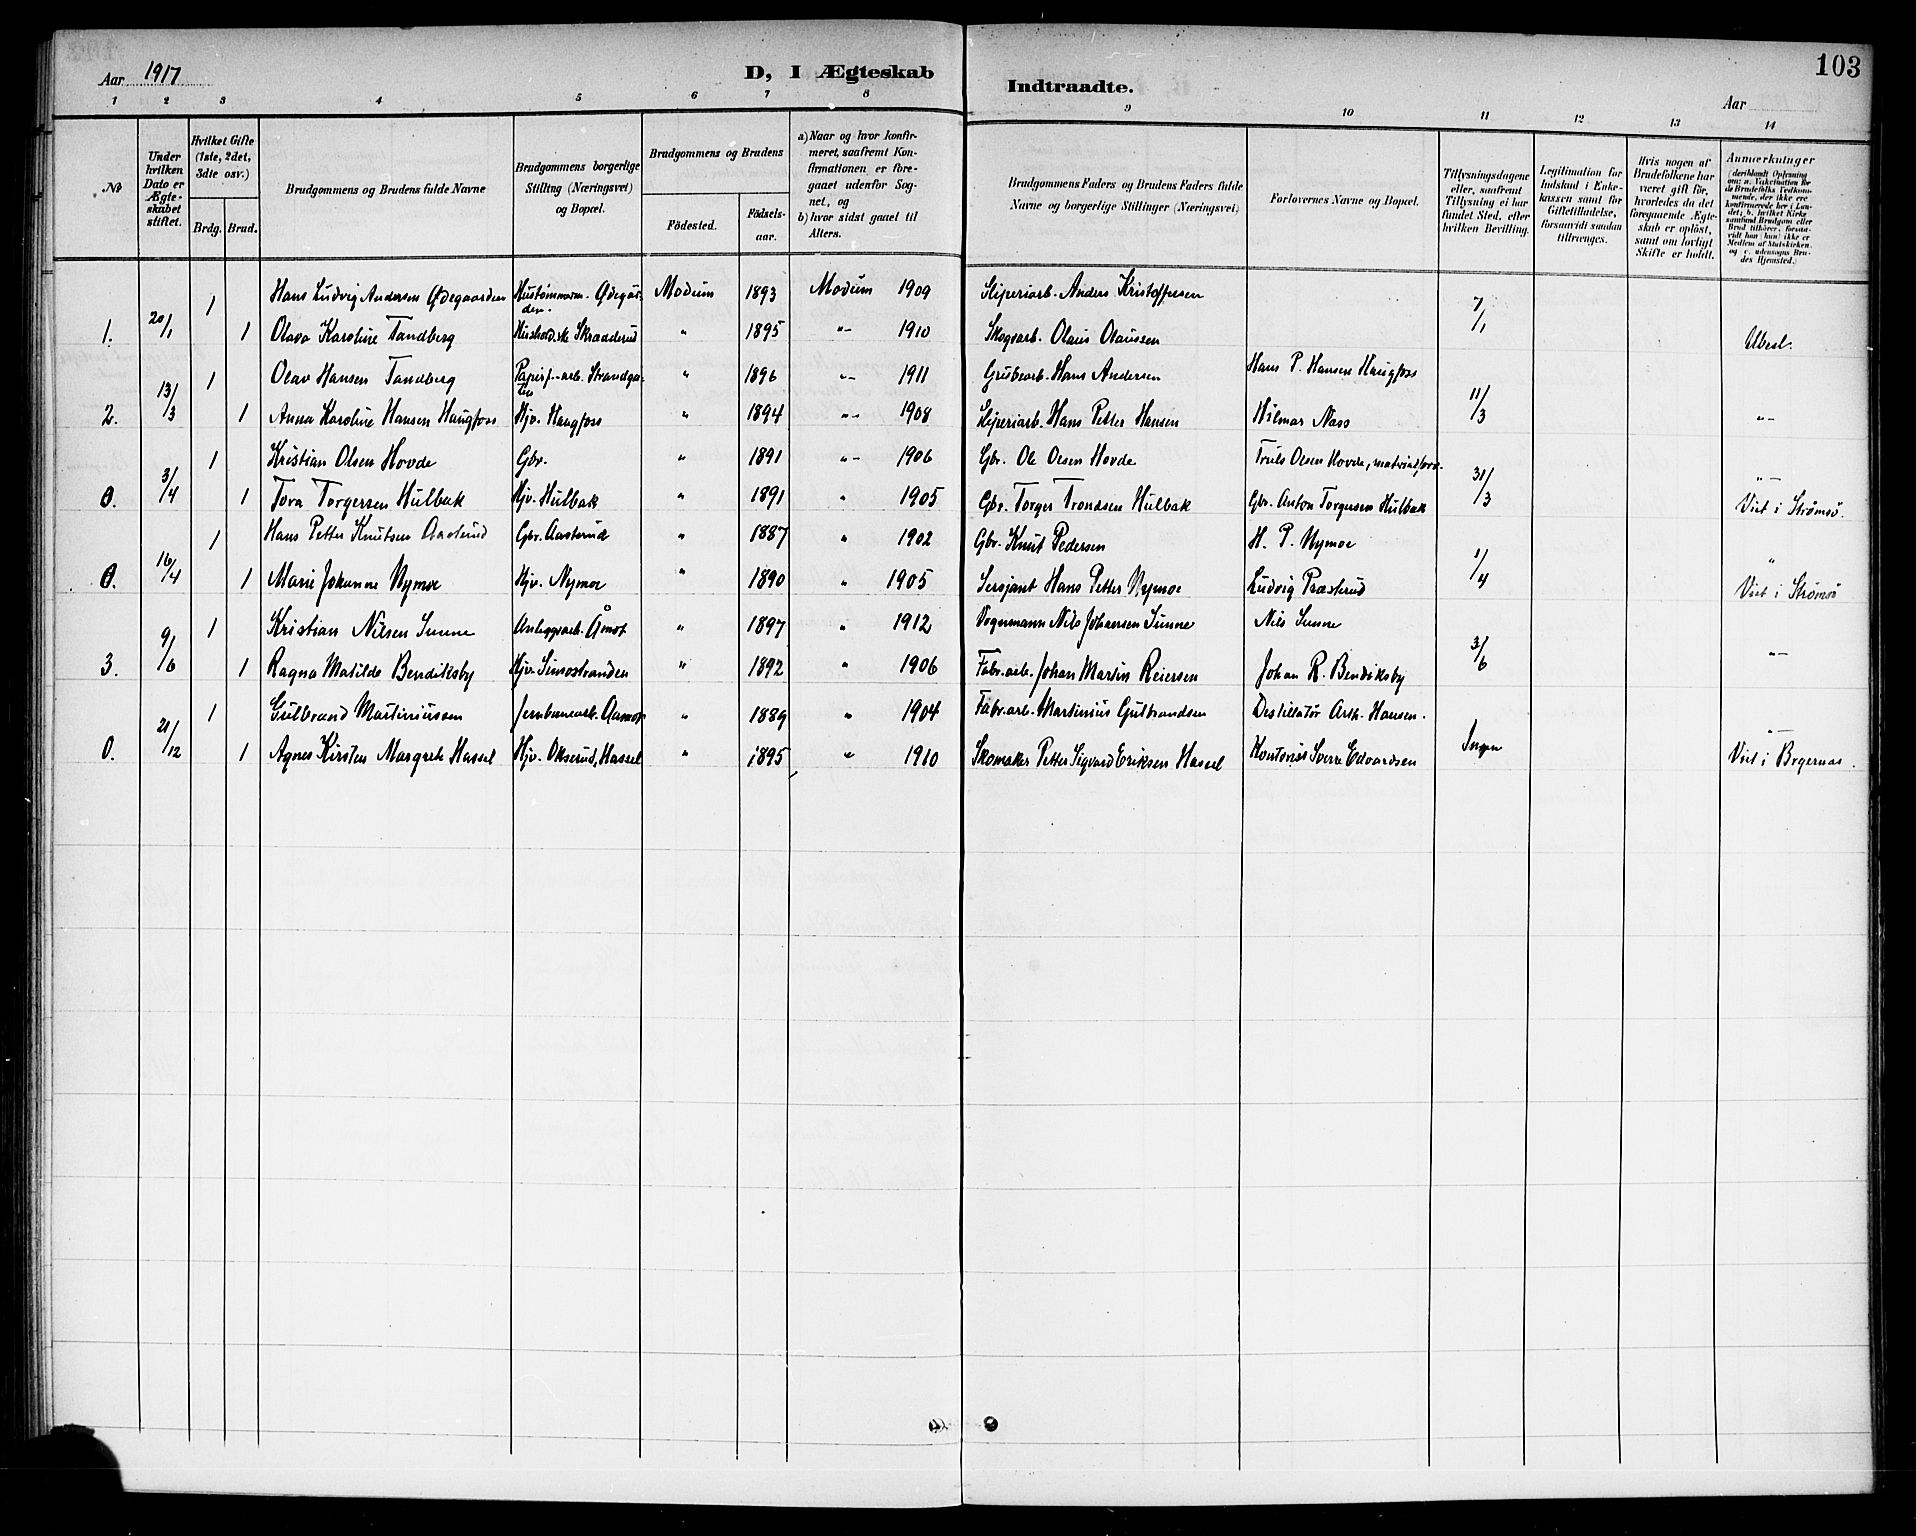 103
Aar 1917
D, I Ægteskab Indtraadte.
Aar
1 2 3 4 5 6 7 8 9 10 11 12 13 14
№
Under hvilken Dato er Ægteskabet stiftet.
Hvilket Gifte (1ste, 2det, 3die osv.)
Brdg. Brud.
Brudgommens og Brudens fulde Navne
Brudgommens borgerlige Stilling (Næringsvei) og Bopæl.
Brudgommens og Brudens
Fødested. Fødselsaar.
a) Naar og hvor konfirmeret, saafremt Konfirmationen er foregaaet udenfor Sognet, og
b) hvor sidst gaaet til Alters.
Brudgommens Faders og Brudens Faders fulde Navne og borgerlige Stillinger (Næringsvei)
Forlovernes Navne og Bopæl.
Tillysningsdagene eller, saafremt Tillysning ei har fundet Sted, efter hvilken Bevilling.
Legitimation for Indskud i Enkekassen samt for Giftetilladelse, forsaavidt saadan tiltrænges.
Hvis nogen af Brudefolkene har været gift før, hvorledes da det foregaaende Ægteskab er opløst, samt om lovligt Skifte er holdt.
Anmærkninger (deriblandt Oplysning om: a. Vakcination for de Brudefolks Vedkommende, der ikke ere konfirmerede her i Landet; b. hvilket Kirkesamfund Brudgom eller Brud tilhører, forsaavidt han (hun) ikke er Medlem af Statskirken, og c. udensogns Brudes Hjemsted.)
1 Hans Ludvig Andersen Ødegaarden Hustømmerm. Ødegaarden. Modum 1893 Modum 1909 Sliperiarb. Anders Kristoffersen 7/1
1. 20/1 1 Olava Karoline Tandberg Hushold.ske Skrædderud " 1895 " 1910 Skogvarb. Olaus Olaussen Ubesl.
1 Olav Hansen Tandberg Papirf. arb. Strandgaten " 1896 " 1911 Grubearb. Hans Andersen Hans P. Hansen Haugfoss
2. 13/3 1 Anna Karoline Hansen Haugfoss Hjv. Haugfoss " 1894 " 1908 Sliperiarb. Hans Petter Hansen Hilmar Nass 11/3 "
1 Kristian Olsen Hovde Gbr. " 1891 " 1906 Gbr. Ole Olsen Hovde Truls Olsen Hovde, "
0. 3/4 1 Tora Torgersen Hulbak Hjv. Hulbak " 1891 " 1905 Gbr. Torger Trondsen Hulbak Gbr. Anton Torgersen Hulbak 31/3 Viet i Strømsø.
1 Hans Petter Knutsen Aaslerud Gbr. Aasterud " 1887 " 1902 Gbr. Knut Pedersen H. P. Nymoe "
0. 16/4 1 Marie Johanne Nymoe Hjv. Nymoe " 1890 " 1905 Sersjant Hans Petter Nymoe Ludvig Præsterud 1/4 Viet i Strømsø
1 Kristian Nilsen Sunne Anleggsarb. Åmot " 1897 " 1912 Vognmann Nils Johansen Sunne Nils Sunne
3. 9/6 1 Ragna Matilde Bendiksby Hjv. Simostranden " 1892 " 1906 Fabr.arb. Johan Martin Reiersen Johan R. Bendiksby 3/6 "
1 Gulbrand Martiniussen Jernbanearb. Aamot " 1889 " 1904 Fabr.arb. Martinius Gulbrandsen Destillatør Arth. Hansen. "
0. 21/12 1 Agnes Kirsten Margrete Hassel Hjv. Okserud, Hassel " 1895 " 1910 Skomaker Petter Sigvard Eriksen Hassel Kontorist Sverre Edvardsen Ingen Viet i Bragernæs.